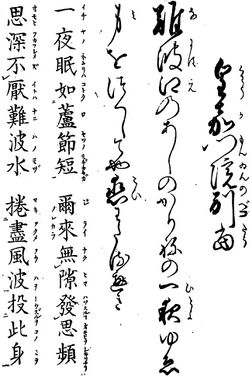 皇嘉門院別當
難波江のあしのかりねの一夜ゆゑ
身をつくしてや恋わたるへき
一夜眠如蘆節短 爾來無隙發思頻
思深不厭難波水 捲盡風波投此身